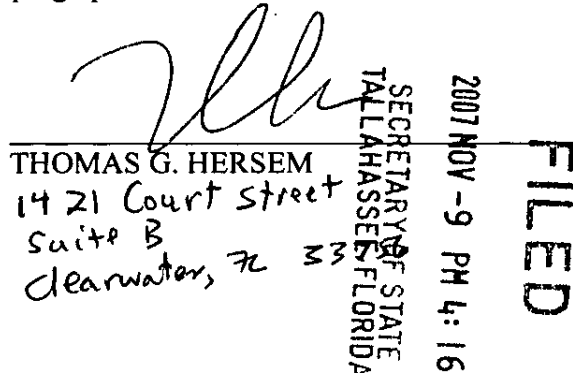 THOMAS G. HERSEM
1421 Court Street
Suite B
Clearwater, FL
FILED
2007 NOV -9 PM 4:16
SECRETARY OF STATE
TALLAHASSEE, FLORIDA